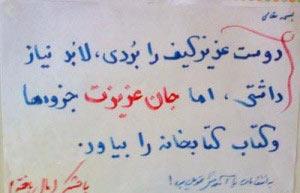 بسمه تعالی
دوست عزیز کیف را بُردی، لابد نیاز
داشتی، اما جان عزیزت جزوه‌ها
و کتاب کتابخانه را بیاور.
با تشکر